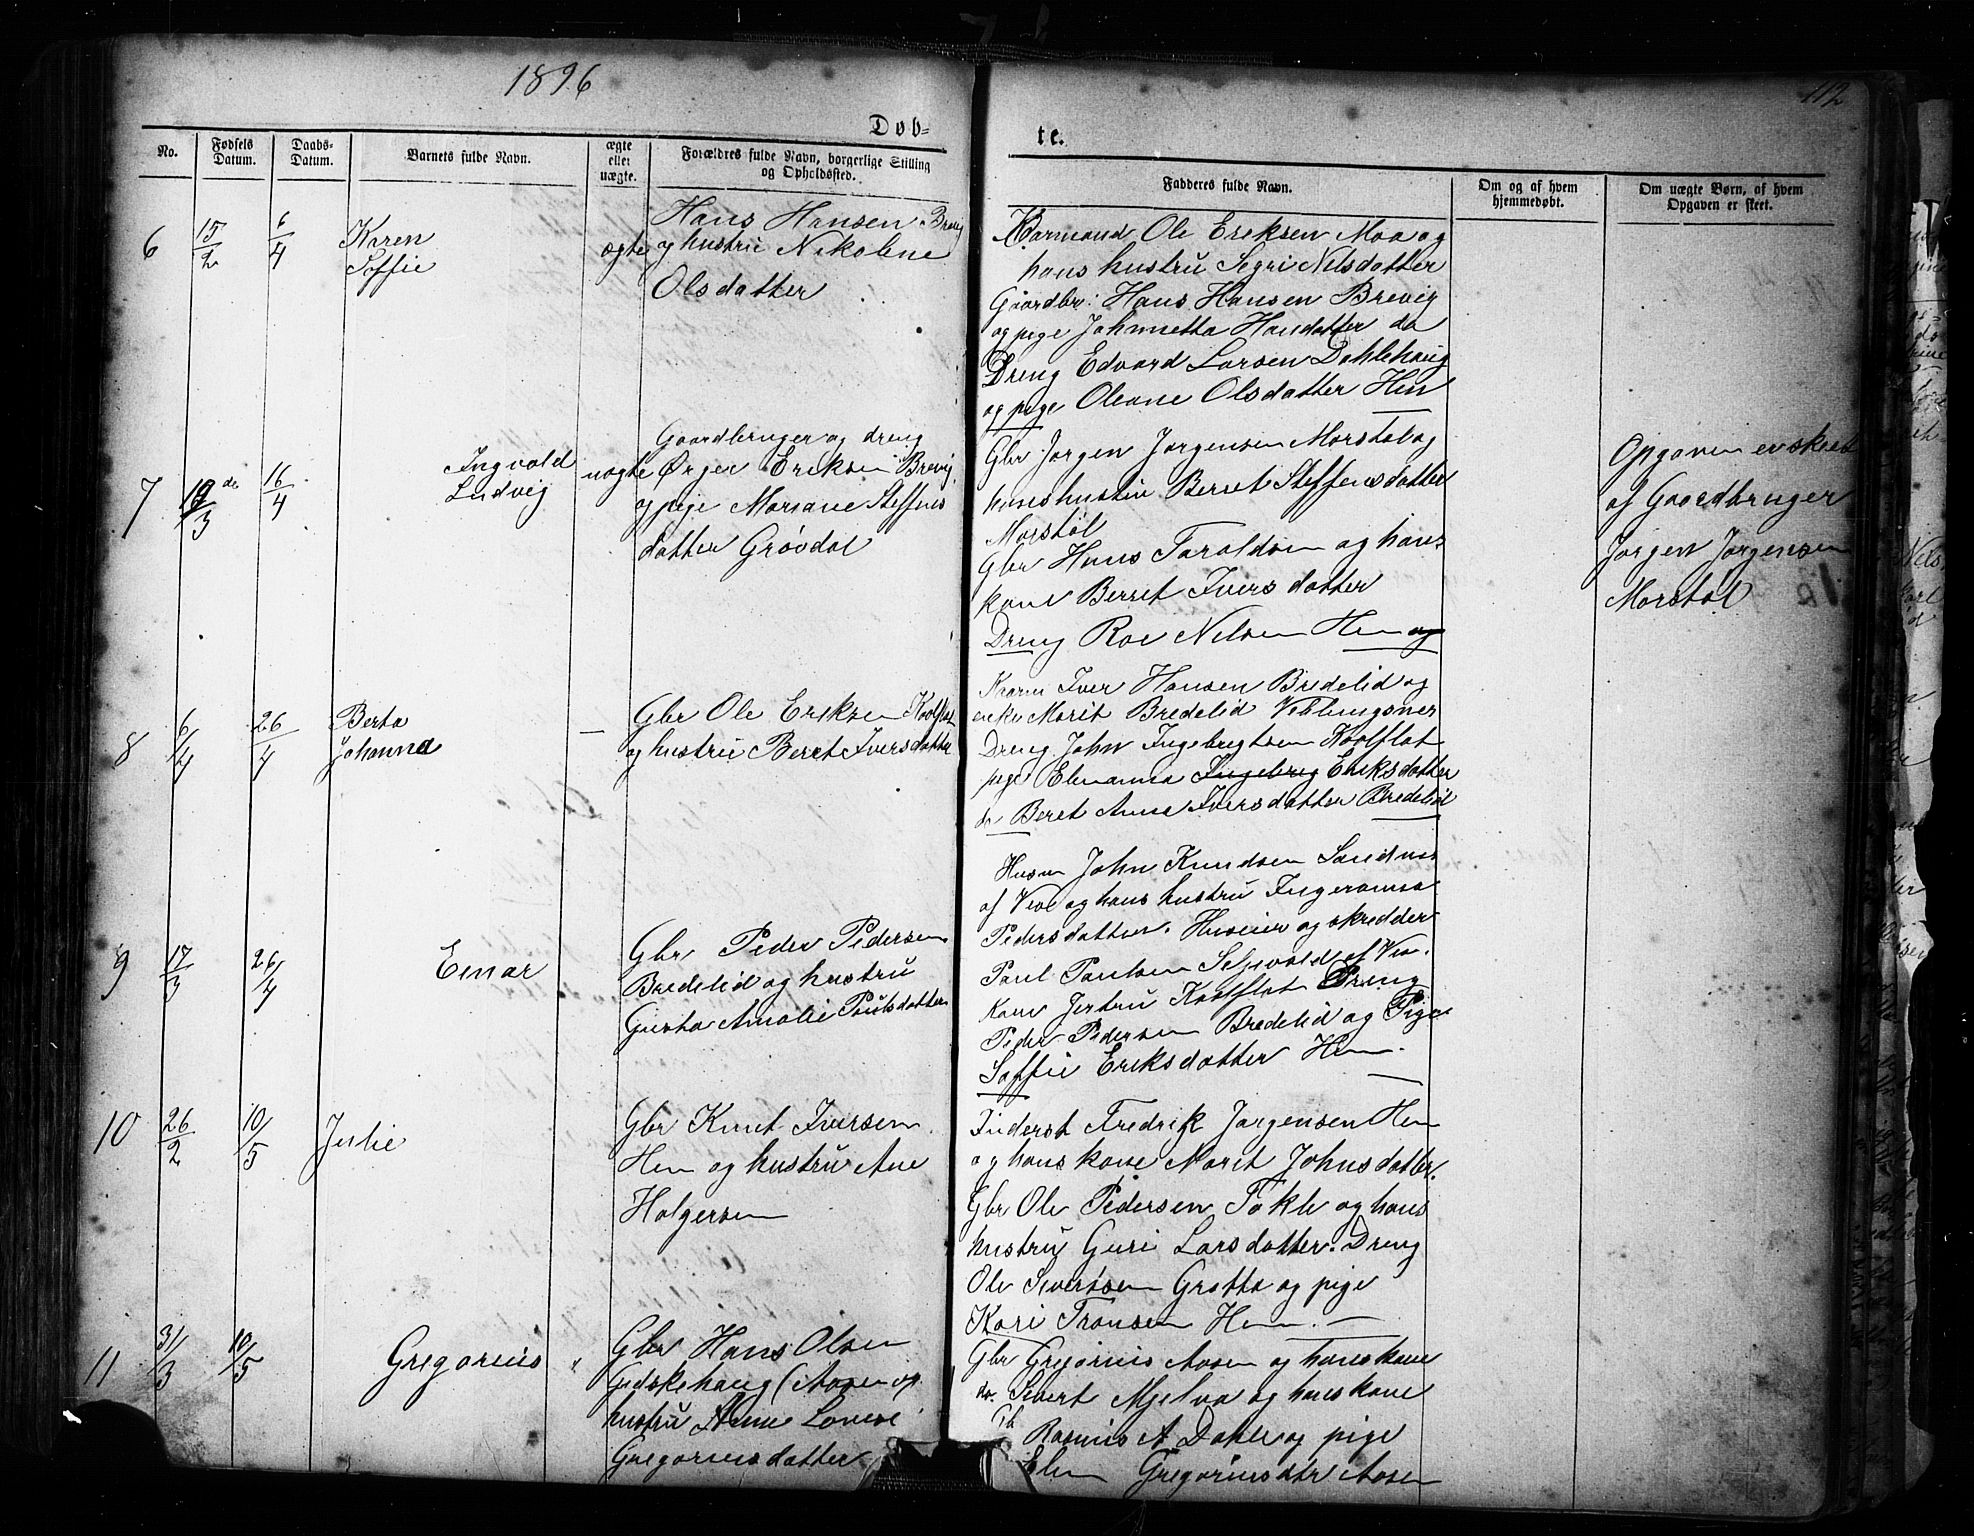 1896
112
Døb-
te.
No.
Fødsels Datum.
Daabs-Datum.
Barnets fulde Navn.
ægte eller uægte.
Forældres fulde Navn, borgerlige Stilling og Opholdssted.
Fadderes fulde Navn.
Om og af hvem hjemmedøbt.
Om uægte Børn, af hvem Opgaven er skeet.
6
15/2
6/4
Karen
Soffie
ægte
Hans Hansen Brevig
og hustru Nikoline
Olsdatter
Kaarmand Ole Eriksen Moa og
hans hustru Segri Nelsdatter
Gaardbr: Hans Hansen Brevig
og pige Johnnetta Hansdatter do
Dreng Edvard Larsen Dahlehaug
og pige Oleane Olsdatter Hen
7
16/4
Ingvald
Ludvig
uægte
Gaardbruger og dreng
Ørger Eriksen Brevig
og pige Mariane Steffens
datter Grøvdal
Gbr Jørgen Jørgensen Morstøl og
hans hustru Berret Steffensdatter
Morstøl
Gbr Hans Taraldsen og hans
kone Berret Iversdatter
Dreng Roe Nelsen Hen og
Opgaven er skeet
af Gaardbruger
Jørgen Jørgensen
Morstøl
8
6/4
26/4
Berta
Johanna
—
Gbr Ole Eriksen Kaolflat
og hustru Beret Iversdatter
Kaarm Iver Hansen Bredelid og
enke Marit Bredelid Veblungsnes
Dreng John Ingebrigtsen Kaolflat
pige Elenanna Ingebrig Eriksdatter
do Beret Anne Iversdatter Bredelid
9
17/3
26/4
Einar
Gbr Peder Pedersen
Bredelid og hustru
Gusta Amalie Paulsdatter
Husm John Knudsen Sandnes
af Veø og hans hustru Ingeranna
Pedersdatter. Huseier og skredder
Paul Paulsen Seljevold af Veø.
Kone Jertru Kaolflat Dreng
Peder Pedersen Bredelid og Pige
Soffie Eriksdatter Hen.
10
26/2
10/5
Julie
Gbr Knut Iversen
Hen og hustru Ane
Holgersen
Inderst Fredrik Jørgensen Hen
og hans kone Marit Johnsdatter.
Gbr Ole Pedersen Tokle og hans
hustru Guri Larsdatter. Dreng
Ole Sivertsen Grøtta og pige
Kari Tronsen Hen.
11
31/3
10/5
Gregorius
"
Gbr Hans Olsen
Gidskehaug (Aasen og
hustru Anne Lovise
Gregoriusdatter
Gbr Gregorius Aasen og hans kone
do. Sivert Mjelva og hans kone
Rasmus A. Dahle og pige
Elen Gregoriusdtr Aasen